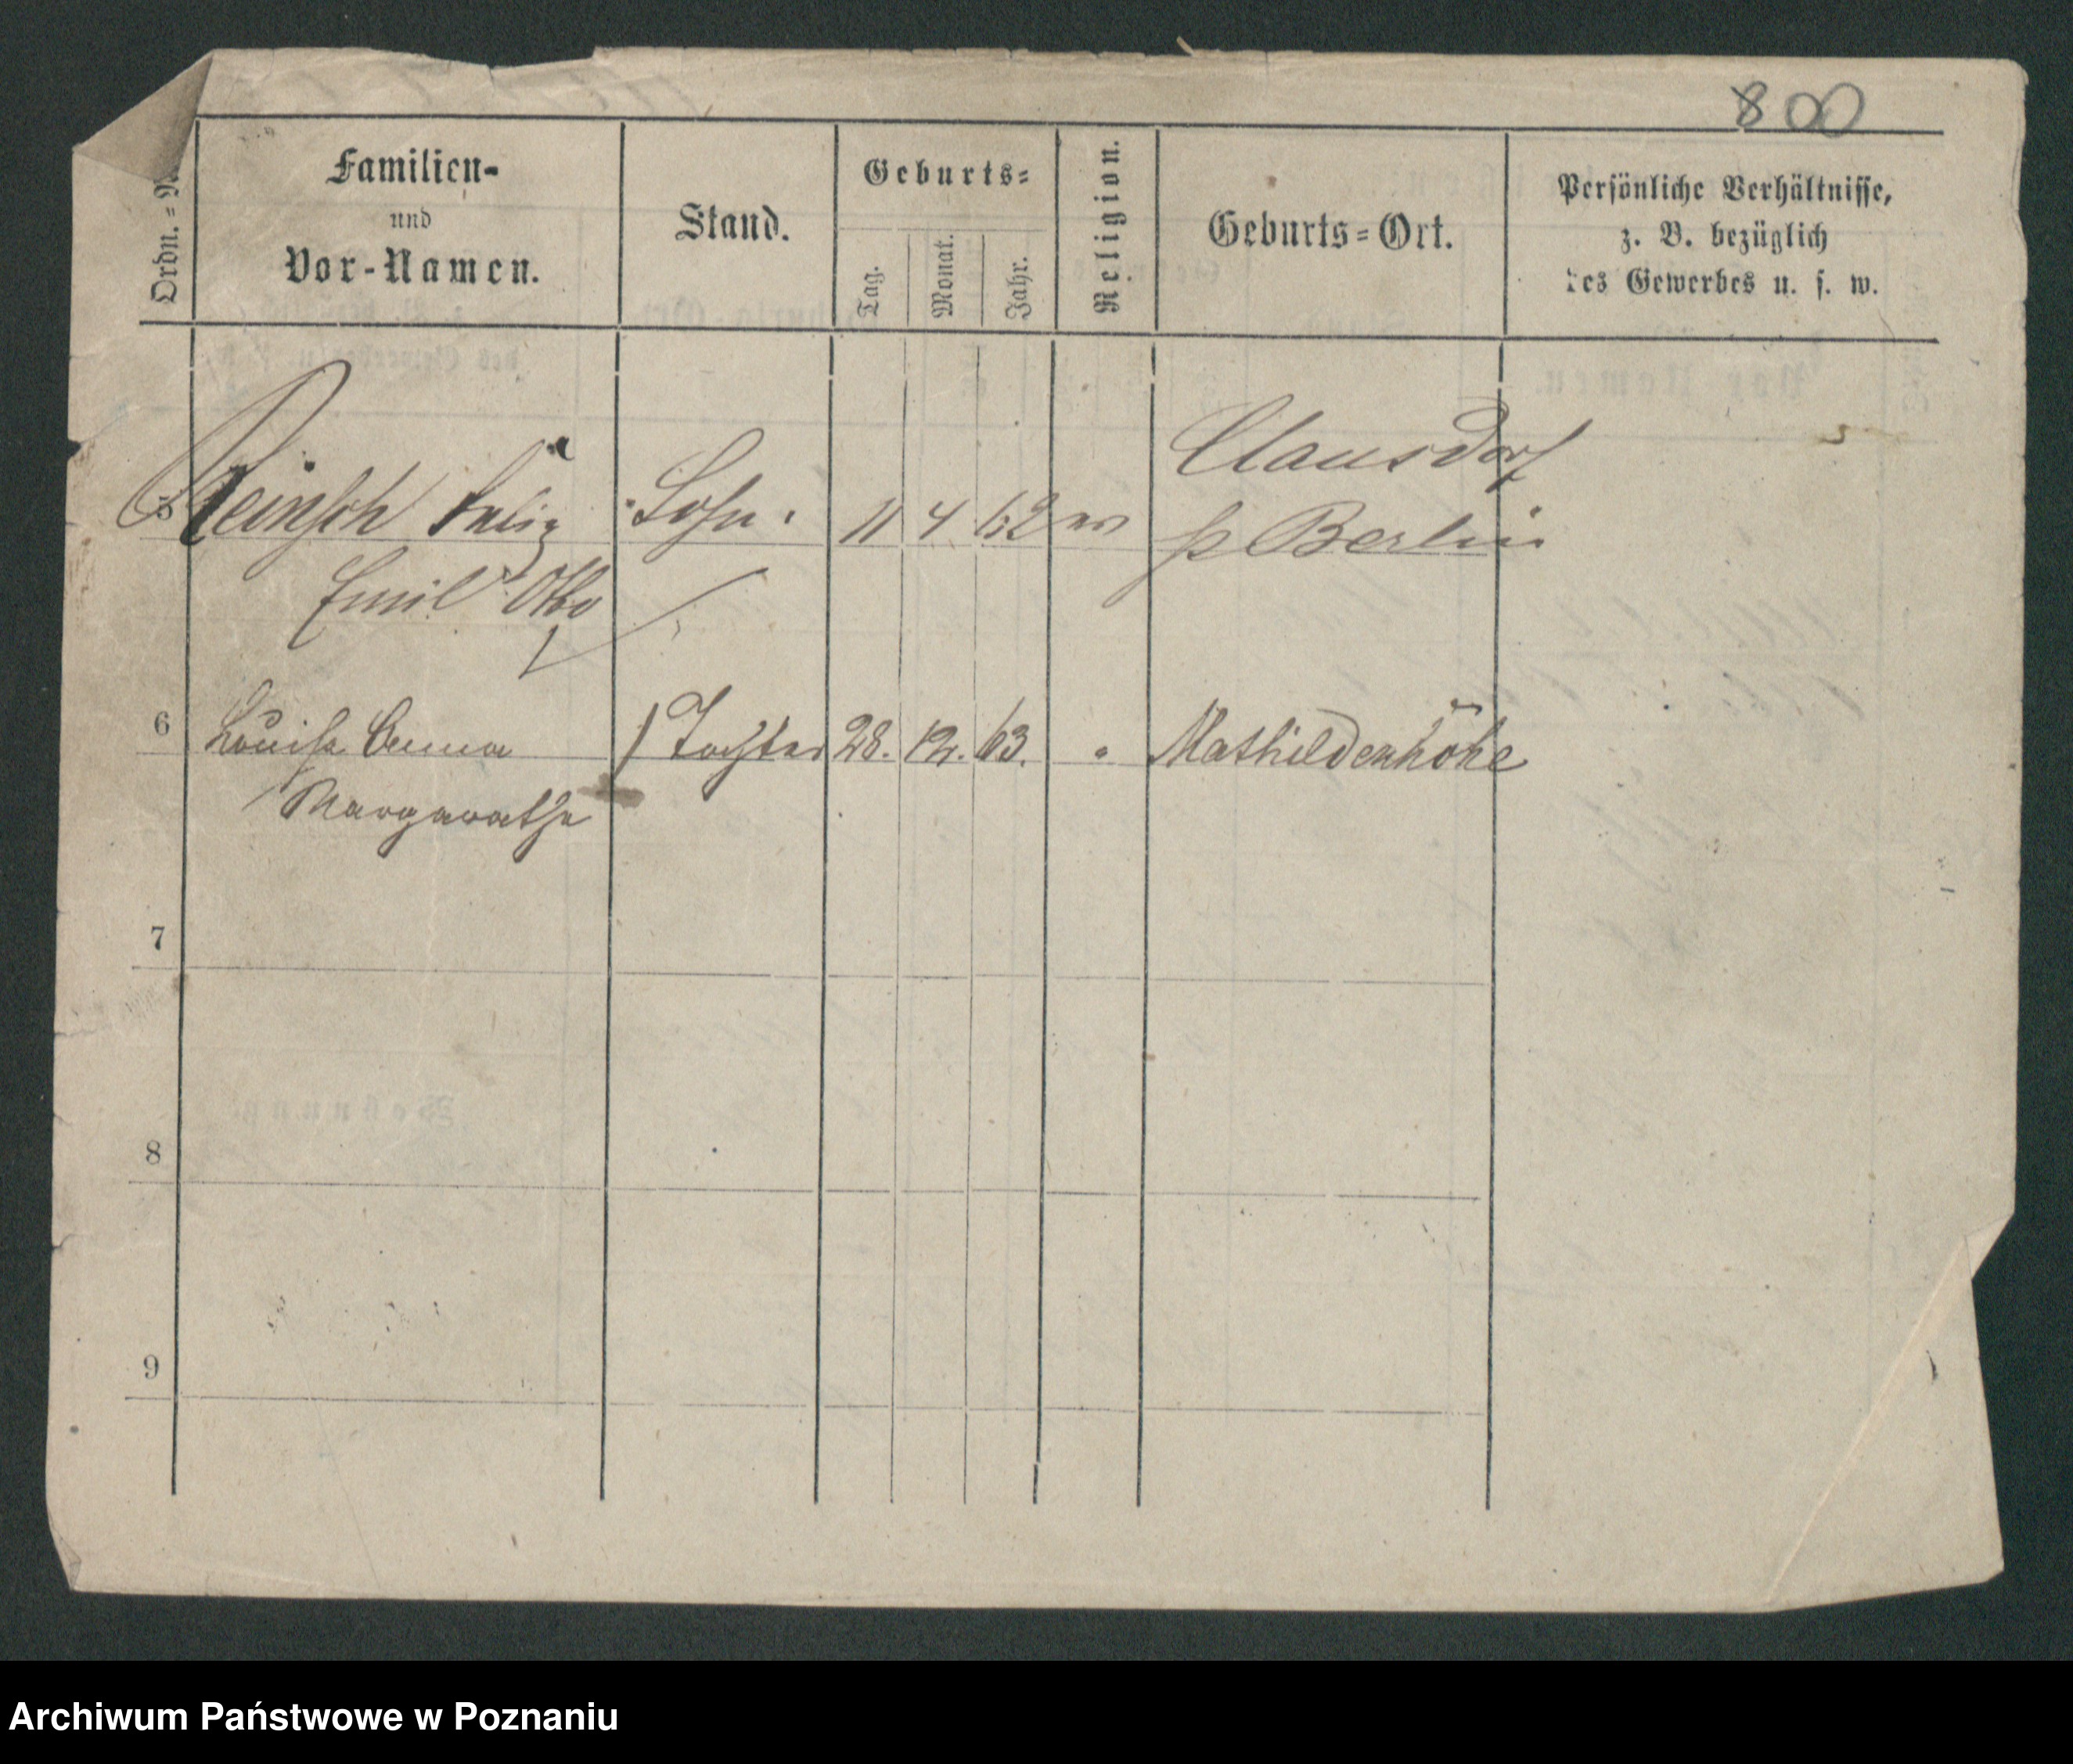 800
Ordn.=N
Familien-
und
Vor-Namen.
Stand.
Geburts=
Tag.
Monat.
Jahr.
Religion.
Geburts=Ort.
Persönliche Verhältnisse,
z. B. bezüglich
des Gewerbes u. s. w.
Clausdorf
5 Reinsch Felix Sohn. 11 4 62 ev p Berlin
Emil Otto
6 Louise Anna Tochter 28. 12. 63. " Mathildenhöhe
Margarethe
7
8
9
Archiwum Państwowe w Poznaniu